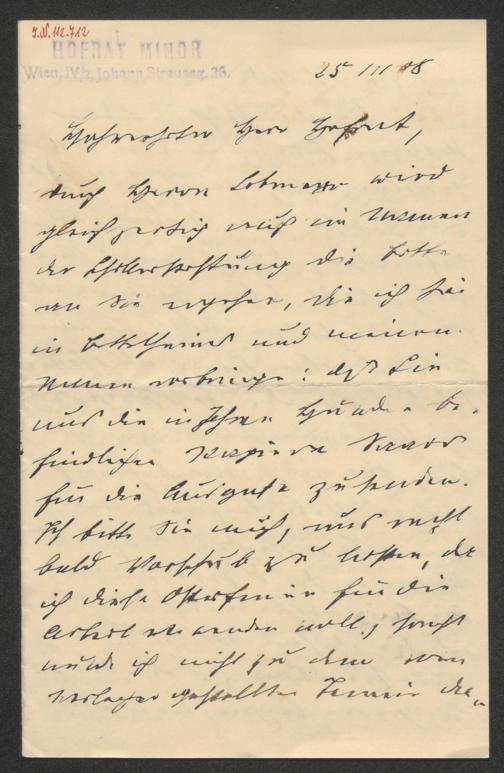 J.N. 112.712
HOFRAT MINOR
Wien, IV/2, Johann Straussg. 36.
25 III 08
Hochverehrter Herr Hofrat,
durch Herrn wird
gleichzeitig auch im Namen
der Schillerstiftung die Bitte
an Sie ergehen, die ich hier
in Bettelheims und meinem
Namen vorbringe: daß Sie
uns die in Ihren Händen be-
findlichen Papiere Saars
für die Ausgabe zusenden.
Ich bitte Sie auch, uns recht
bald Vorschub zu leisten, da
ich diese Osterferien für die
Arbeit verwenden will; sonst
würde ich nicht zu dem vom
Verleger gestellten Termin